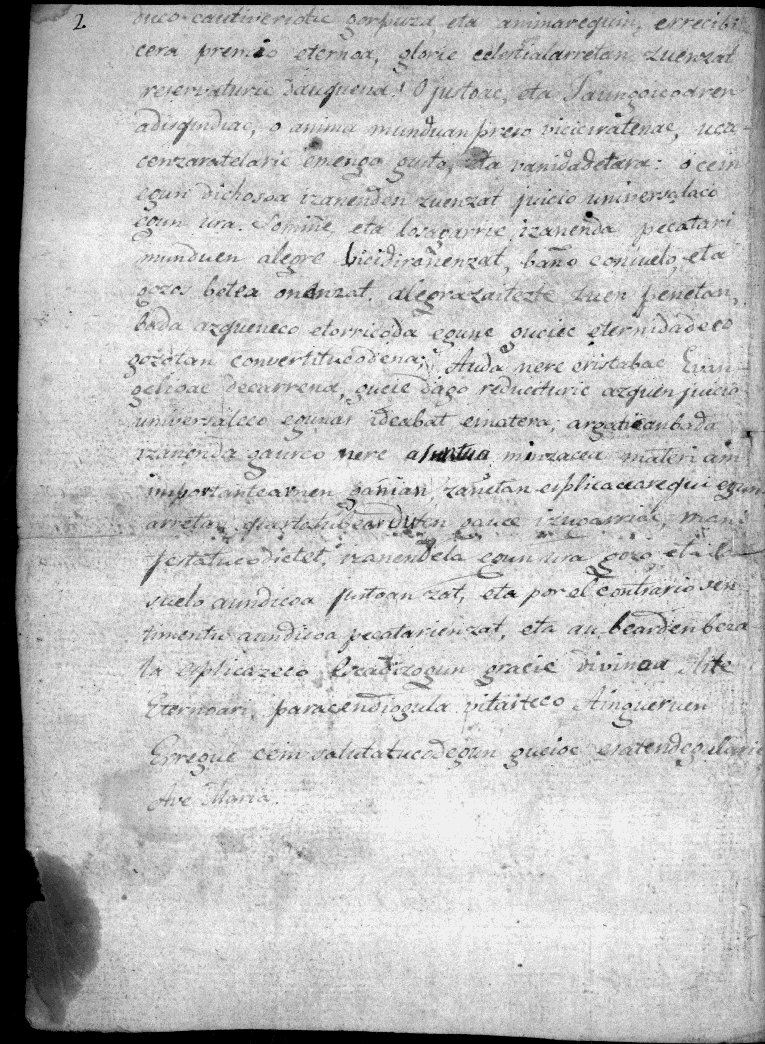 2
onco cautiveriotic gorpuza, eta animarequin, errecibi
cera premio eternoa, glorie celestialarretan zuenzat
reservaturic dauquena! O justoac, eta Jaungoicoaren
adisquidiac, o anima munduan preso viciciratenac, uca
cenzaratelaric emengo gusto, eta vanidadetara: o cein
egun dichosoa izanenden zuenzat juicio universalaco
egun ura. Terrible, eta losagarrie izanenda pecatari
munduen alegre bicidiranenzat, baño consuelo, eta
gozos betea onenzat. Alegrazaitezte zuen penetan,
bada azqueneco etorricoda egune guciec eternidadeco
gozotan convertitucodena; Auda nere cristabac Evan-
gelioac decarrena, gucie dago reducituric azquen juicio
universaleco egunas ideabat ematera; argaticanbada
izanenda gaurco nere asuntua minzacea materi ain
importantearen gañian, zañetan esplicacearequi egun
arretan quartalubearduten gauce izugarriac, mani-
festatucodietet, izanendela egun ura gozo, eta con-
suelo aundicoa justoanzat, eta por el contrario sen-
timentu aundicoa pecatarienzat, eta au bearden beza
la esplicazeco escadizogun gracie divinoa Aite
Eternoari, paracendiogula vitarteco Aingueruen
Erregue cein salutatucodegun gucioc esatendegularic
Ave Maria.